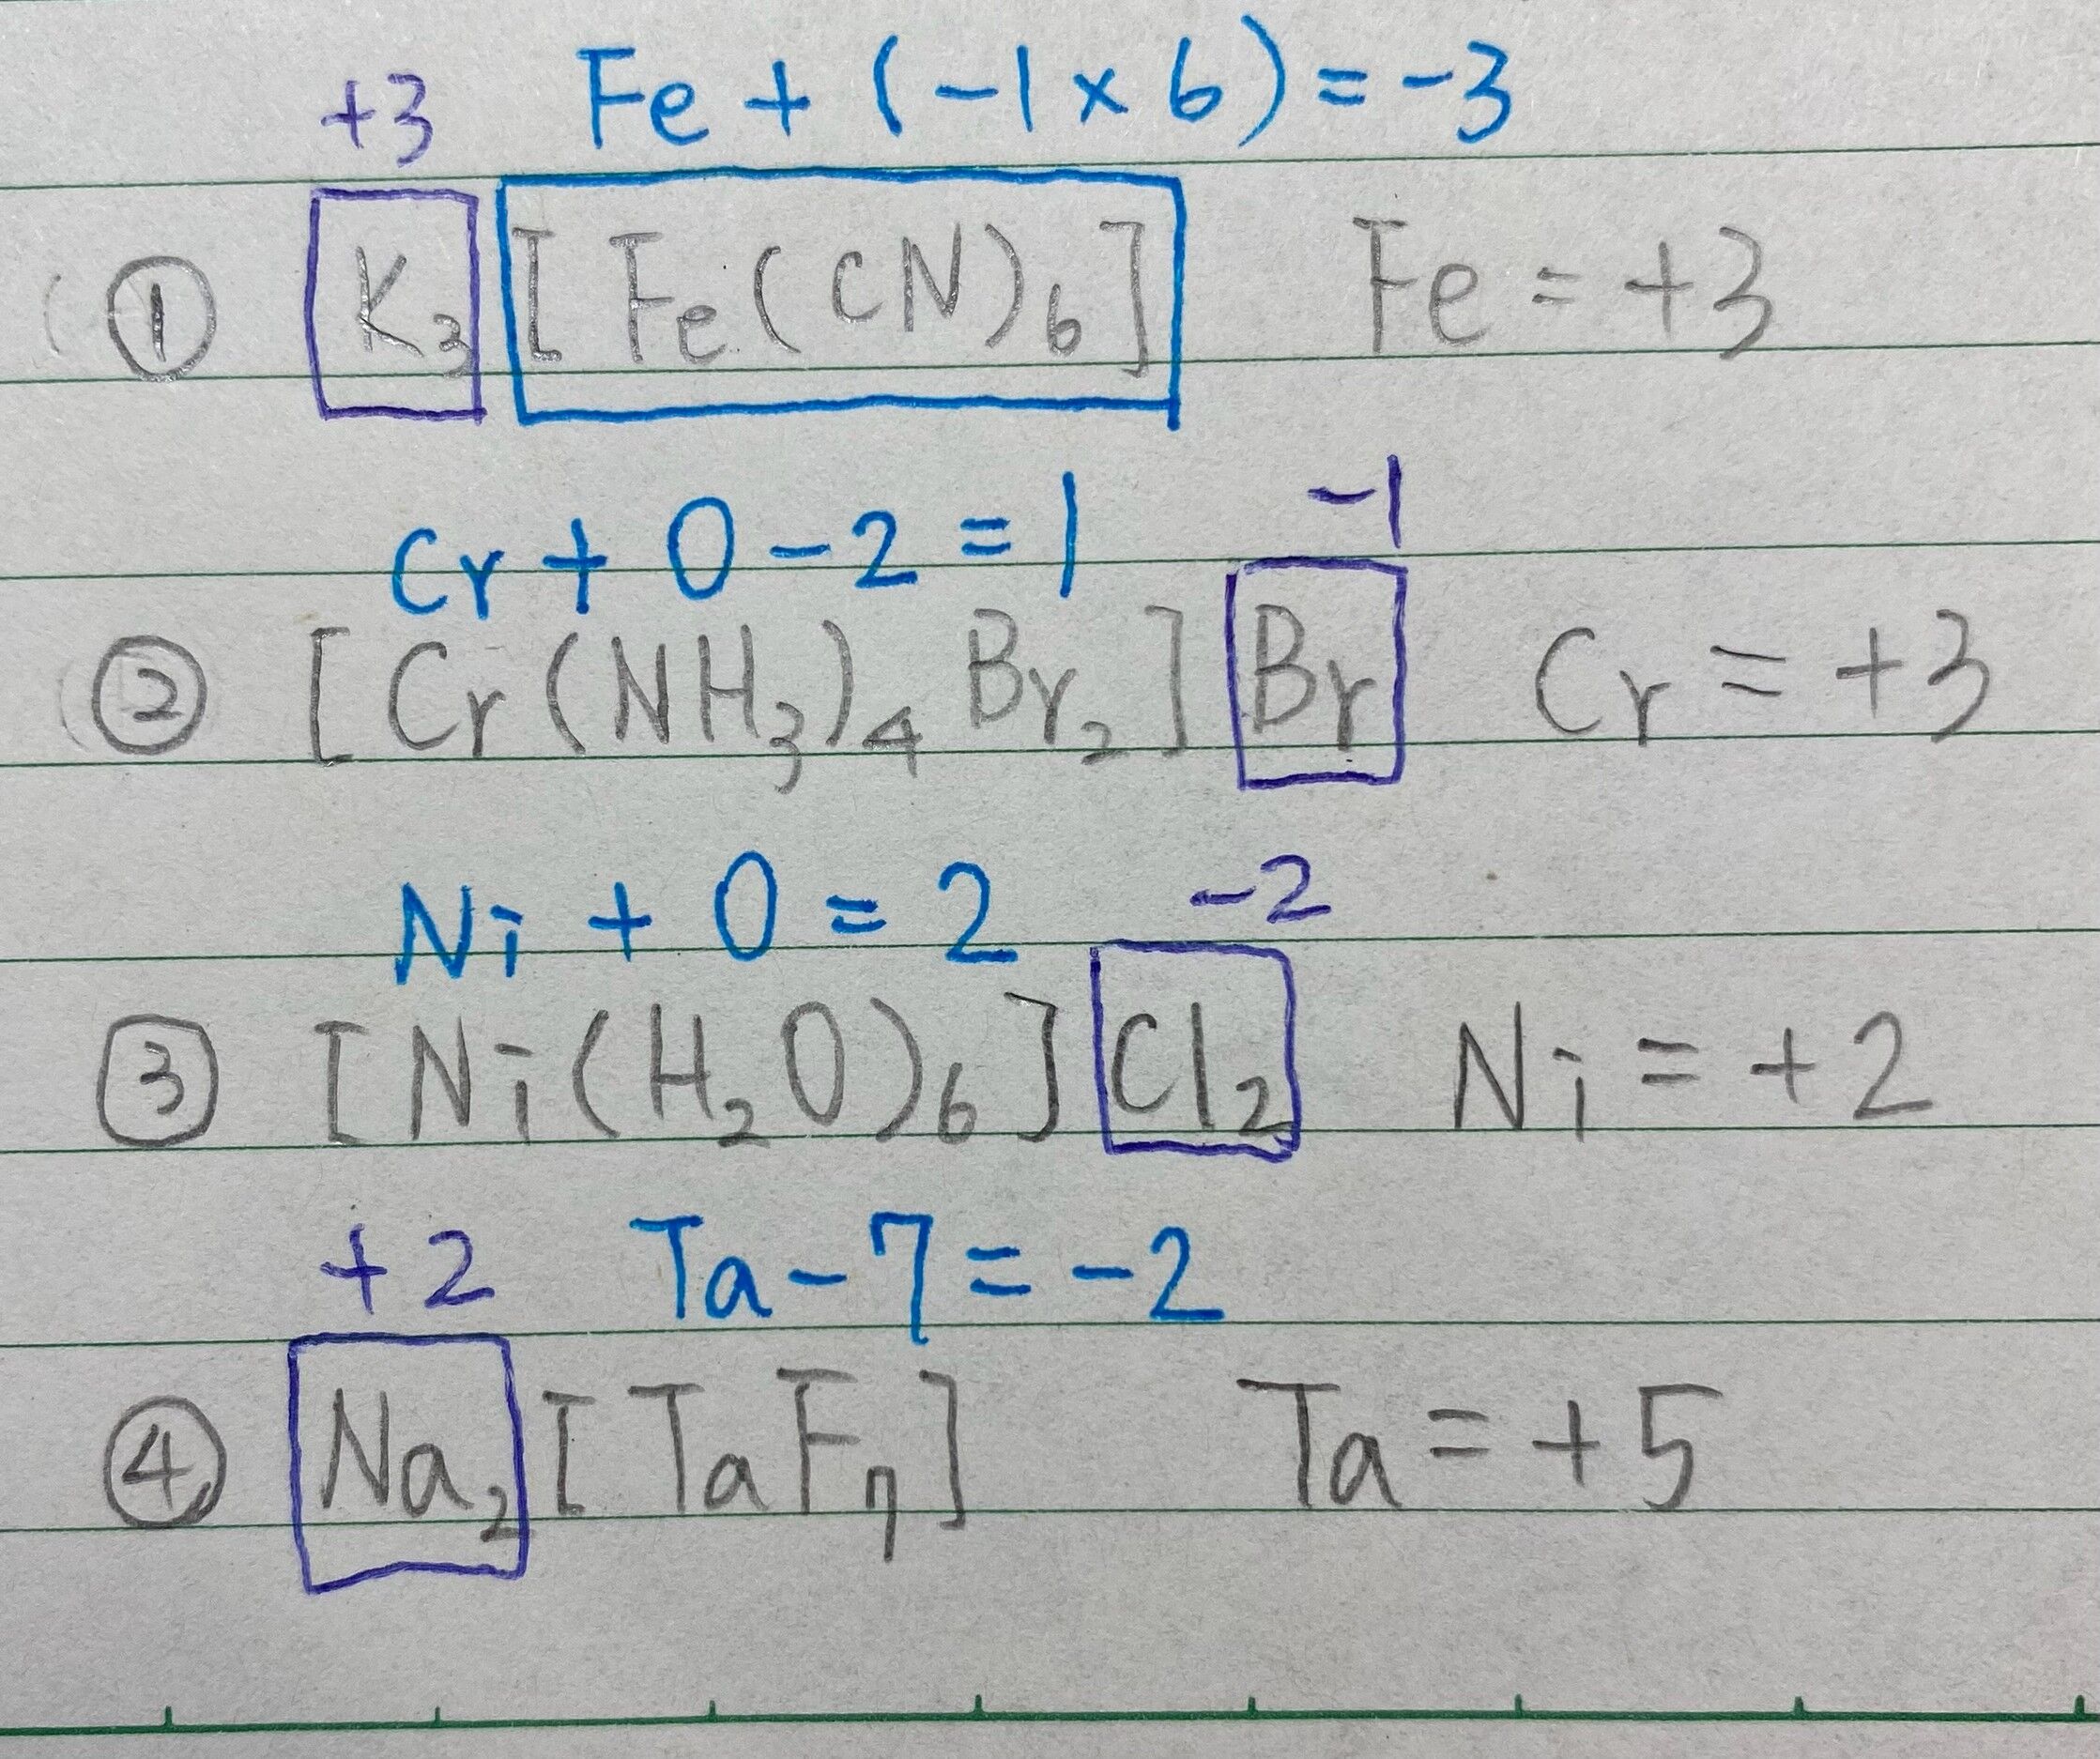 +3 Fe + (-1 × 6) = -3
① K₃ [Fe(CN)₆] Fe = +3
Cr + 0 - 2 = 1 -1
② [Cr(NH₃)₄Br₂]Br Cr = +3
Ni + 0 = 2 -2
③ [Ni(H₂O)₆]Cl₂ Ni = +2
+2 Ta - 7 = -2
④ Na₂[TaF₇] Ta = +5